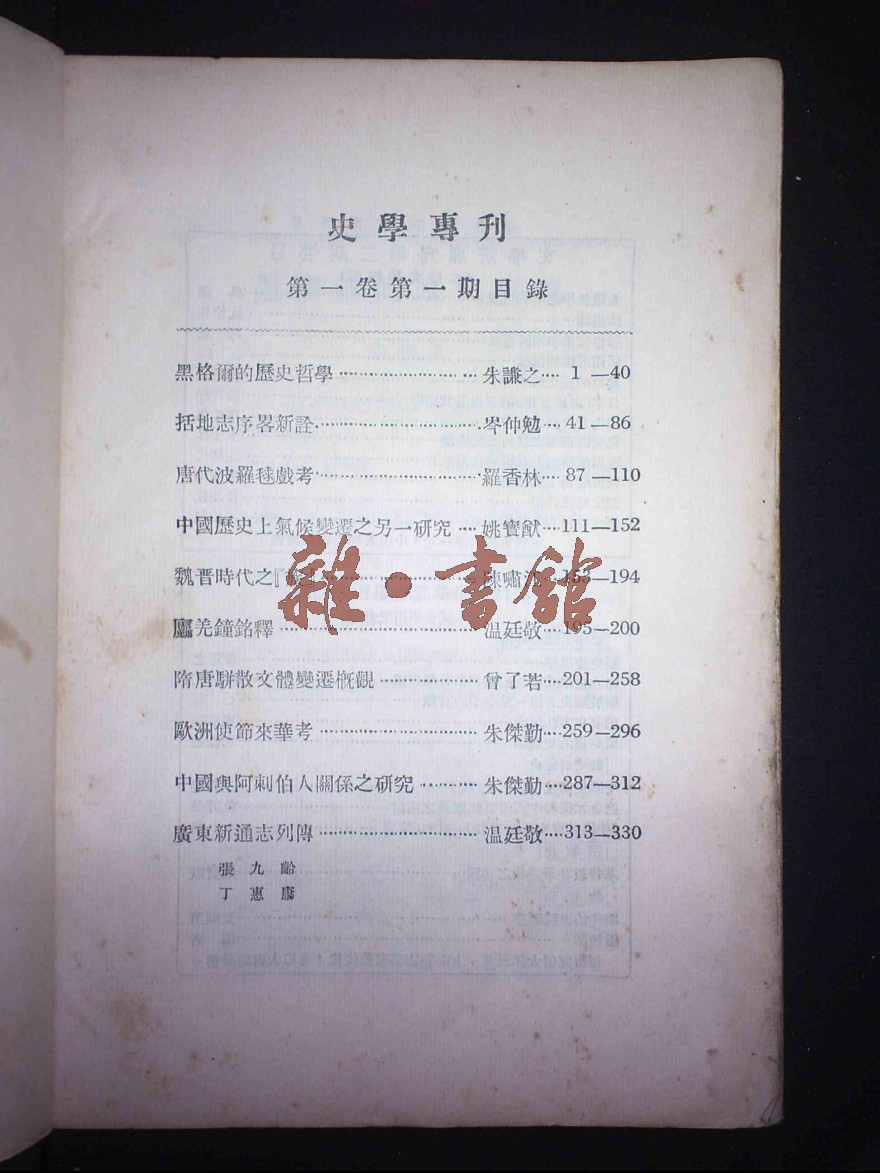 史學專刊
第一卷第一期目錄
黑格爾的歷史哲學 朱謙之 1—40
括地志序畧新詮 岑仲勉 41—86
唐代波羅毬戲考 羅香林 87—110
中國歷史上氣候變遷之另一研究 姚寶猷 111—152
魏晋時代之 陳嘯江 153—194
羌鐘銘釋 温廷敬 195—200
隋唐駢散文體變遷槪觀 曾了若 201—258
歐洲使節來華考 朱傑勤 259—296
中國與阿剌伯人關係之研究 朱傑勤 287—312
廣東新通志列傳 温廷敬 313—330
張九齡
丁惠康
雜·書館